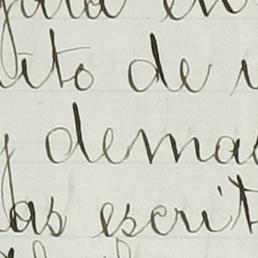 en
ito de
y demas
las escrit